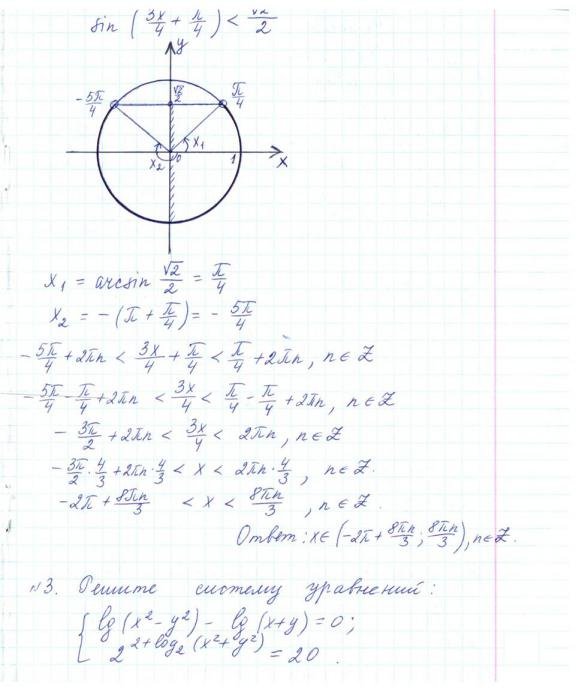 sin (3x/4 + π/4) < √2/2
y
-5π/4
√2/2
π/4
x₁
x₂
0
1
x
x₁ = arcsin √2/2 = π/4
x₂ = -(π + π/4) = - 5π/4
-5π/4 + 2πn < 3x/4 + π/4 < π/4 + 2πn, n ∈ Z
-5π/4 - π/4 + 2πn < 3x/4 < π/4 - π/4 + 2πn, n ∈ Z
- 3π/2 + 2πn < 3x/4 < 2πn, n ∈ Z
-3π/2 · 4/3 + 2πn · 4/3 < x < 2πn · 4/3, n ∈ Z.
-2π + 8πn/3 < x < 8πn/3, n ∈ Z.
Ответ: x ∈ (-2π + 8πn/3; 8πn/3), n ∈ Z.
№3. Решите систему уравнений:
{ lg (x² - y²) - lg (x+y) = 0;
2^(2+log₂(x²+y²)) = 20.